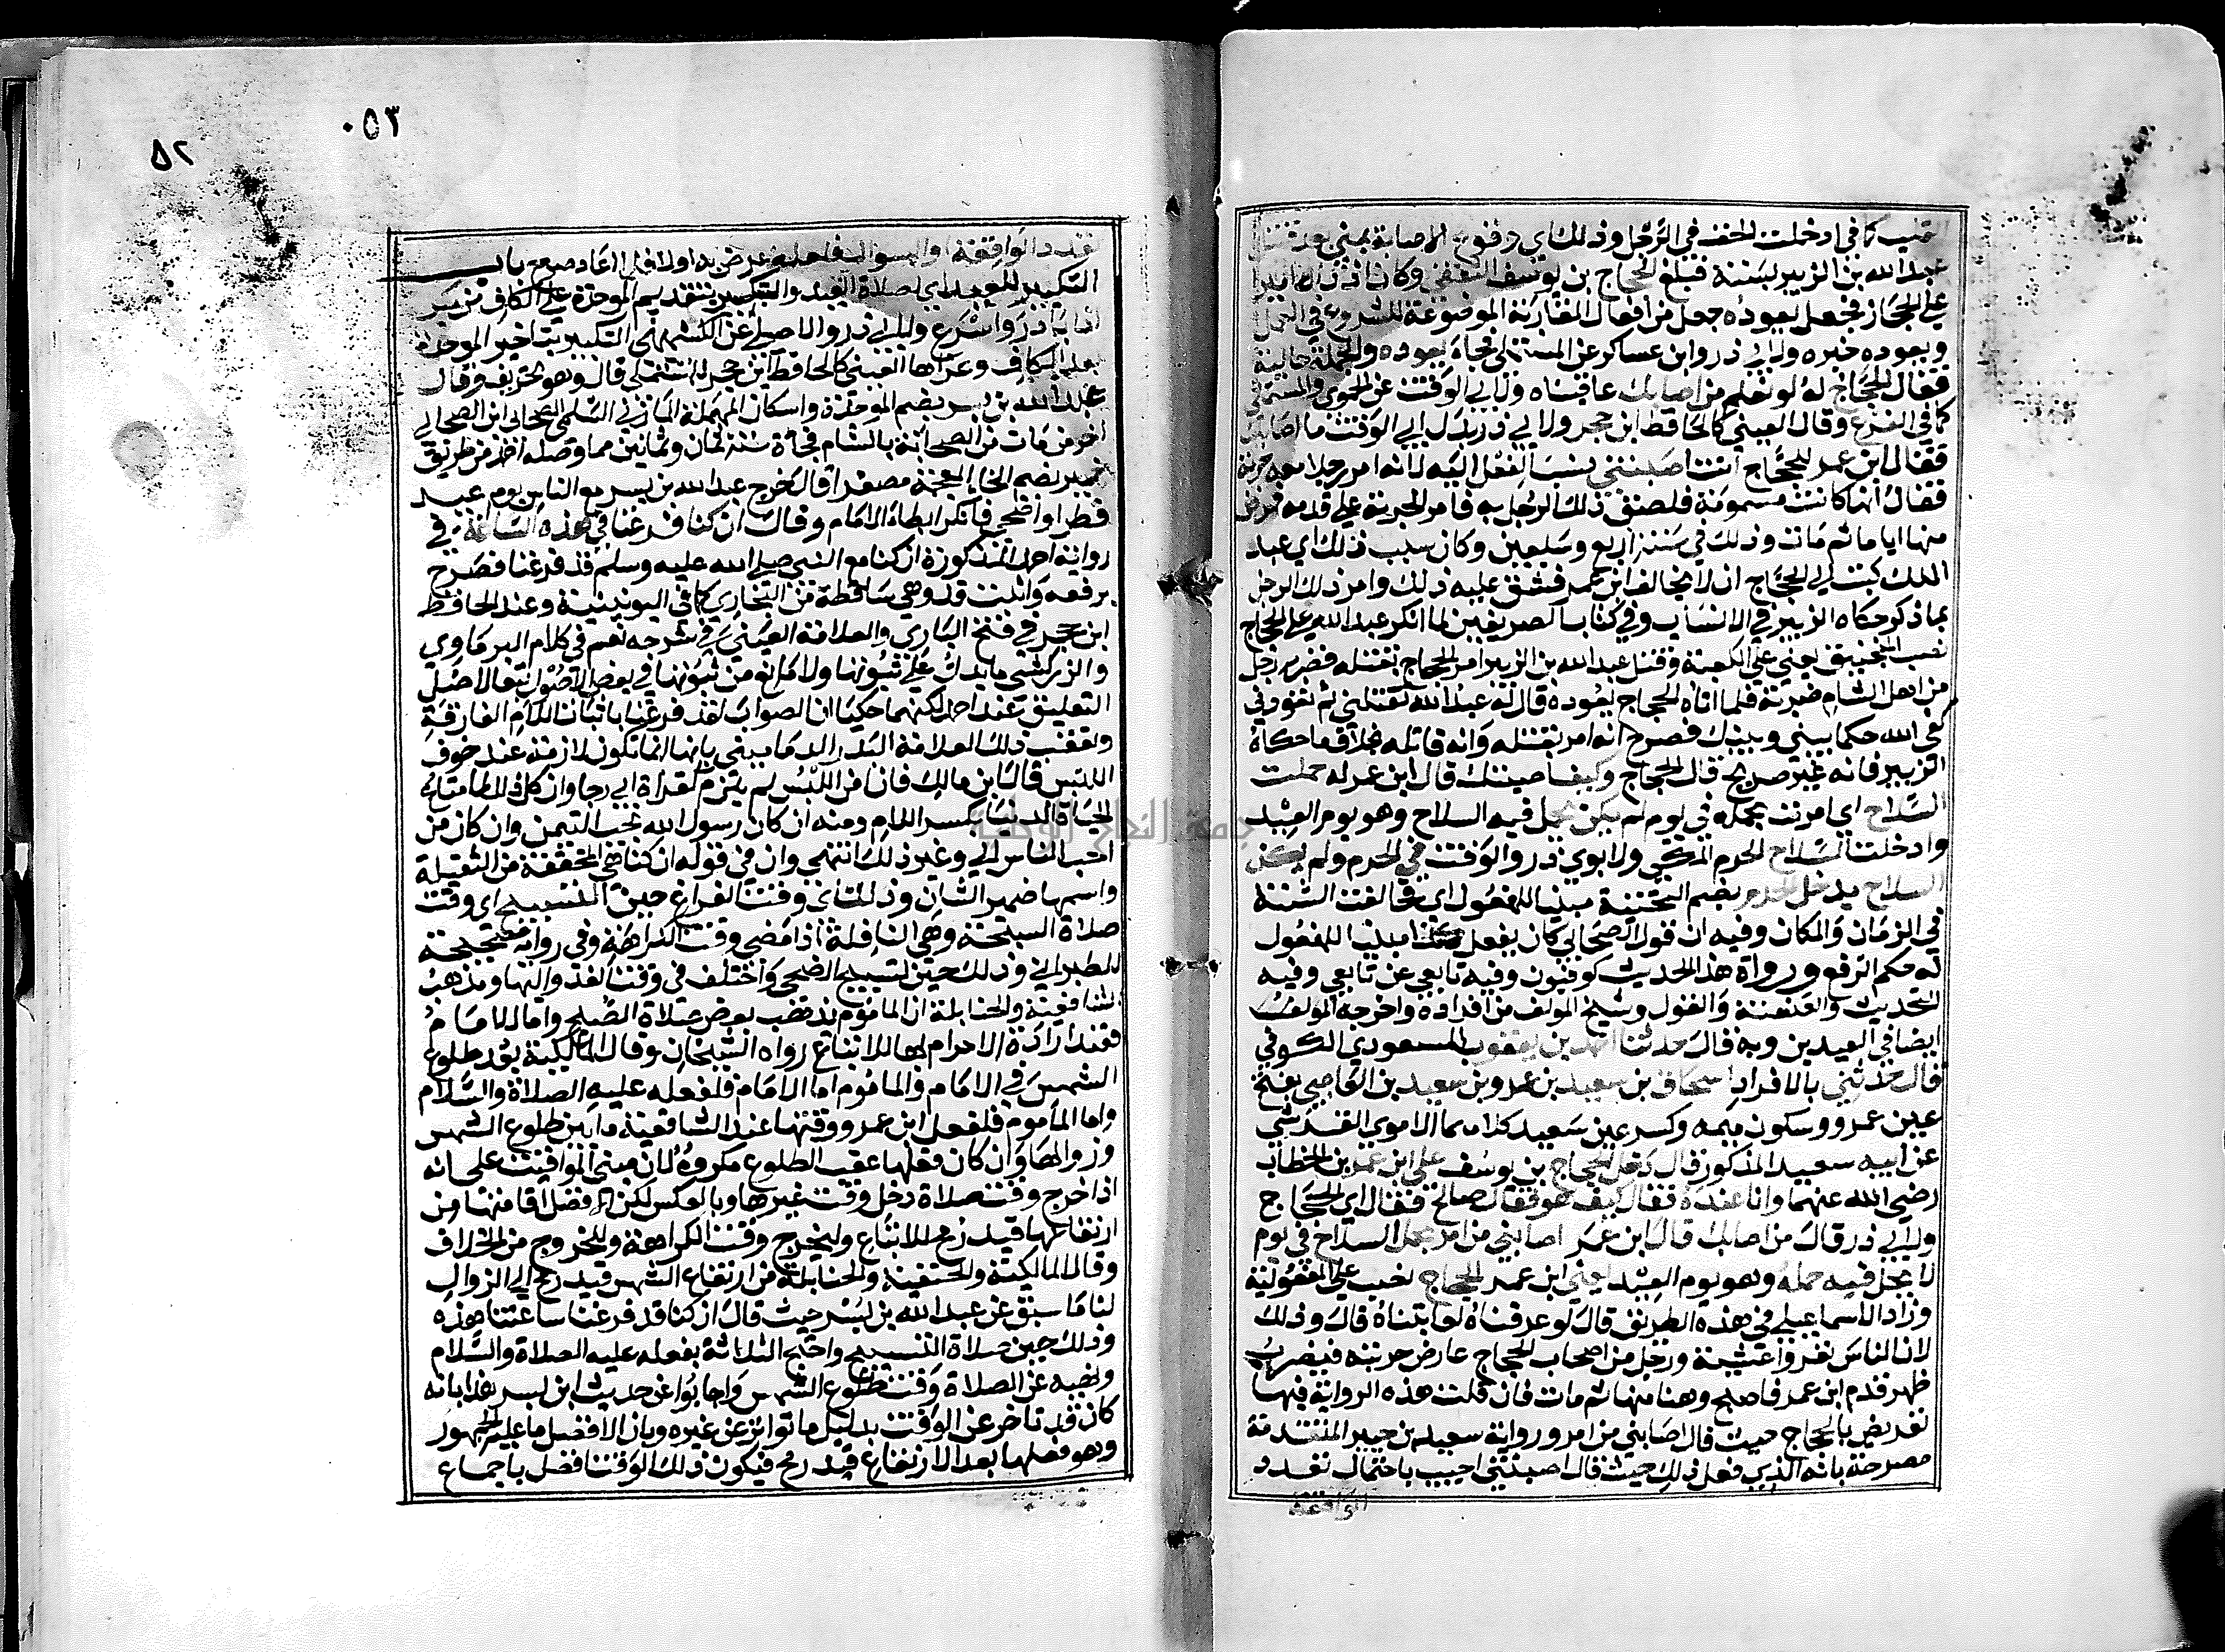 القلب كما في ادخلت الخف في الرجل وذلك اي وقوع الاصابة بمنى بعد قتل
عبد الله بن الزبير بسنة فبلغ الحجاج بن يوسف الثقفي وكان اذ ذاك اميرا
على الحجاز فجعل يعوده جعل من افعال المقاربة الموضوعة للشروع في العمل
ويعوده خبره ولابي ذر وابن عساكر عن المستملي فجاء يعوده والجملة حالية
فقال الحجاج له لو نعلم من اصابك عاقبناه ولابي الوقت عن الحموي والمستملي
كما في الفرع وقال العيني كالحافظ ابن حجر ولابي ذر بدل ابي الوقت ما اصابك
فقال ابن عمر للحجاج انت اصبتني نسب الفعل اليه لانه امر رجلا معه حربة
فقال انها كانت مسمومة فلصق ذلك الرجل به فامر الحربة على قدمه فمرض
منها اياما ثم مات وذلك في سنة اربع وسبعين وكان سبب ذلك اي عبد
الملك كتب الى الحجاج ان لا يخالف ابن عمر فشق عليه ذلك وامر ذلك الرجل
بما ذكر حكاه الزبير في الانساب وفي كتاب الصريفين لما انكر عبد الله على الحجاج
نصب المنجنيق يعني على الكعبة وقتل عبد الله بن الزبير امر الحجاج بقتله فضربه رجل
من اهل الشام ضربة فلما اتاه الحجاج يعوده قال له عبد الله تقتلني ثم تعودني
كفى الله حكما بيني وبينك فصرح انه امر بقتله وانه قاتله بخلاف ما حكاه
الزبير فانه غير صريح قال الحجاج وكيف اصبتك قال ابن عمر له حملت
السلاح اي امرت بحمله في يوم لم يكن يحمل فيه السلاح وهو يوم العيد
وادخلت السلاح الحرم المكي ولابوي ذر والوقت في الحرم ولم يكن
السلاح يدخل الحرم بضم التحتية مبنيا للمفعول اي فخالفت السنة
في الزمان والمكان وفيه ان قول الصحابي كان يفعل كذا مبنيا للمفعول
له حكم الرفع ورواة هذا الحديث كوفيون وفيه تابعي عن تابعي وفيه
التحديث والعنعنة والقول وشيخ المؤلف من افراده واخرجه المؤلف
ايضا في العيدين وبه قال حدثنا احمد بن يعقوب المسعودي الكوفي
قال حدثني بالافراد اسحاق بن سعيد بن عمرو بن سعيد بن العاصي بفتح
عين عمرو وسكون ميمه وكسر عين سعيد كلاهما الاموي القرشي
عن ابيه سعيد المذكور قال دخل الحجاج بن يوسف على ابن عمر بن الخطاب
رضي الله عنهما وانا عنده فقال كيف هو فقال صالح فقال اي الحجاج
ولابي ذر قال من اصابك قال ابن عمر اصابني من امر بحمل السلاح في يوم
لا يحل فيه حمله وهو يوم العيد يعني ابن عمر الحجاج نصب على المفعولية
وزاد الاسماعيلي في هذه الطريق قال لو عرفناه لعاقبناه قال وذلك
لان الناس نفروا عشية ورجل من اصحاب الحجاج عارض حربته فيضرب
ظهر قدم ابن عمر فاصبح وهنا منها ثم مات فان قلت هذه الرواية فيها
تعريض بالحجاج حيث قال اصابني من امر ورواية سعيد بن جبير المتقدمة
مصرحة بانه الذي فعل ذلك حيث قال اصبتني اجيب باحتمال تعدد
الواقعة
٠٥٣
٥٢
تعدد الواقعة او السوال فلعله عرض به اولا فلما اعاد صرح باب
التكبير للعيد اي صلاة العيد والتبكير بتقديم الموحدة على الكاف من بكر
اذا بادر واسرع ولابي ذر والاصيلي عن الكشميهني التكبير بتاخير الموحدة
بعد الكاف وعزاها العيني كالحافظ ابن حجر للمستملي قال وهو تحريف وقال
عبد الله بن بسر بضم الموحدة واسكان المهملة المازني السلمي الصحابي ابن الصحابي
اخر من مات من الصحابة بالشام فجاة سنة ثمان وثمانين مما وصله احمد من طريق
خمير بضم الخاء المعجمة مصغرا قال خرج عبد الله بن بسر مع الناس يوم عيد
فطر او اضحى فانكر ابطاء الامام وقال ان كنا فرغنا في هذه الساعة في
رواية احمد المذكورة ان كنا مع النبي صلى الله عليه وسلم قد فرغنا فصرح
برفعه واثبت قد وهي ساقطة من البخاري كما في اليونينية وعند الحافظ
ابن حجر في فتح الباري والعلامة العيني في شرحه نعم في كلام البرماوي
والزركشي ما يدل على ثبوتها ولا مانع من ثبوتها في بعض الاصول تبعا لاصل
التعليق عند احمد لكنهما حكيا ان الصواب لقد فرغنا باثبات اللام الفارقة
وتعقب ذلك العلامة البدر الدماميني بانها انما تكون لازمة عند خوف
اللبس قال ابن مالك فان امن اللبس لم يلزم كقراة ابي رجا وان كل ذلك لما متاع
الحياة الدنيا بكسر اللام ومنه ان كان رسول الله يحب التيمن وان كان من
احب الناس الي وغير ذلك انتهى وان في قوله ان كنا هي المخففة من الثقيلة
واسمها ضمير الشان وذلك اي وقت الفراغ حين التسبيح اي وقت
صلاة السبحة وهي النافلة اذا مضى وقت الكراهة وفي رواية صحيحة
للطبراني وذلك حين تسبيح الضحى واختلف في وقت الغدو اليها ومذهب
الشافعية والحنابلة ان الماموم يذهب بعد صلاة الصبح واما الامام
فعند ارادة الاحرام بها للاتباع رواه الشيخان وقال المالكية بعد طلوع
الشمس في الامام والماموم اما الامام فلفعله عليه الصلاة والسلام
واما الماموم فلفعل ابن عمر ووقتها عند الشافعية ما بين طلوع الشمس
وزوالها وان كان فعلها عقب الطلوع مكروها لان مبنى المواقيت على انه
اذا خرج وقت صلاة دخل وقت غيرها وبالعكس لكن الافضل اقامتها من
ارتفاعها قيد رمح للاتباع وليخرج وقت الكراهة وللخروج من الخلاف
وقال المالكية والحنفية والحنابلة من ارتفاع الشمس قيد رمح الى الزوال
لنا ما سبق عن عبد الله بن بسر حيث قال ان كنا قد فرغنا ساعتنا هذه
وذلك حين صلاة التسبيح واحتج الثلاثة بفعله عليه الصلاة والسلام
ونهيه عن الصلاة وقت طلوع الشمس واجابوا عن حديث ابن بسر هذا بانه
كان قد تاخر عن الوقت بدليل ما تواتر عن غيره وبان الافضل ما عليه الجمهور
وهو فعلها بعد الارتفاع قيد رمح فيكون ذلك الوقت افضل باجماع
جامعة النجاح الوطنية